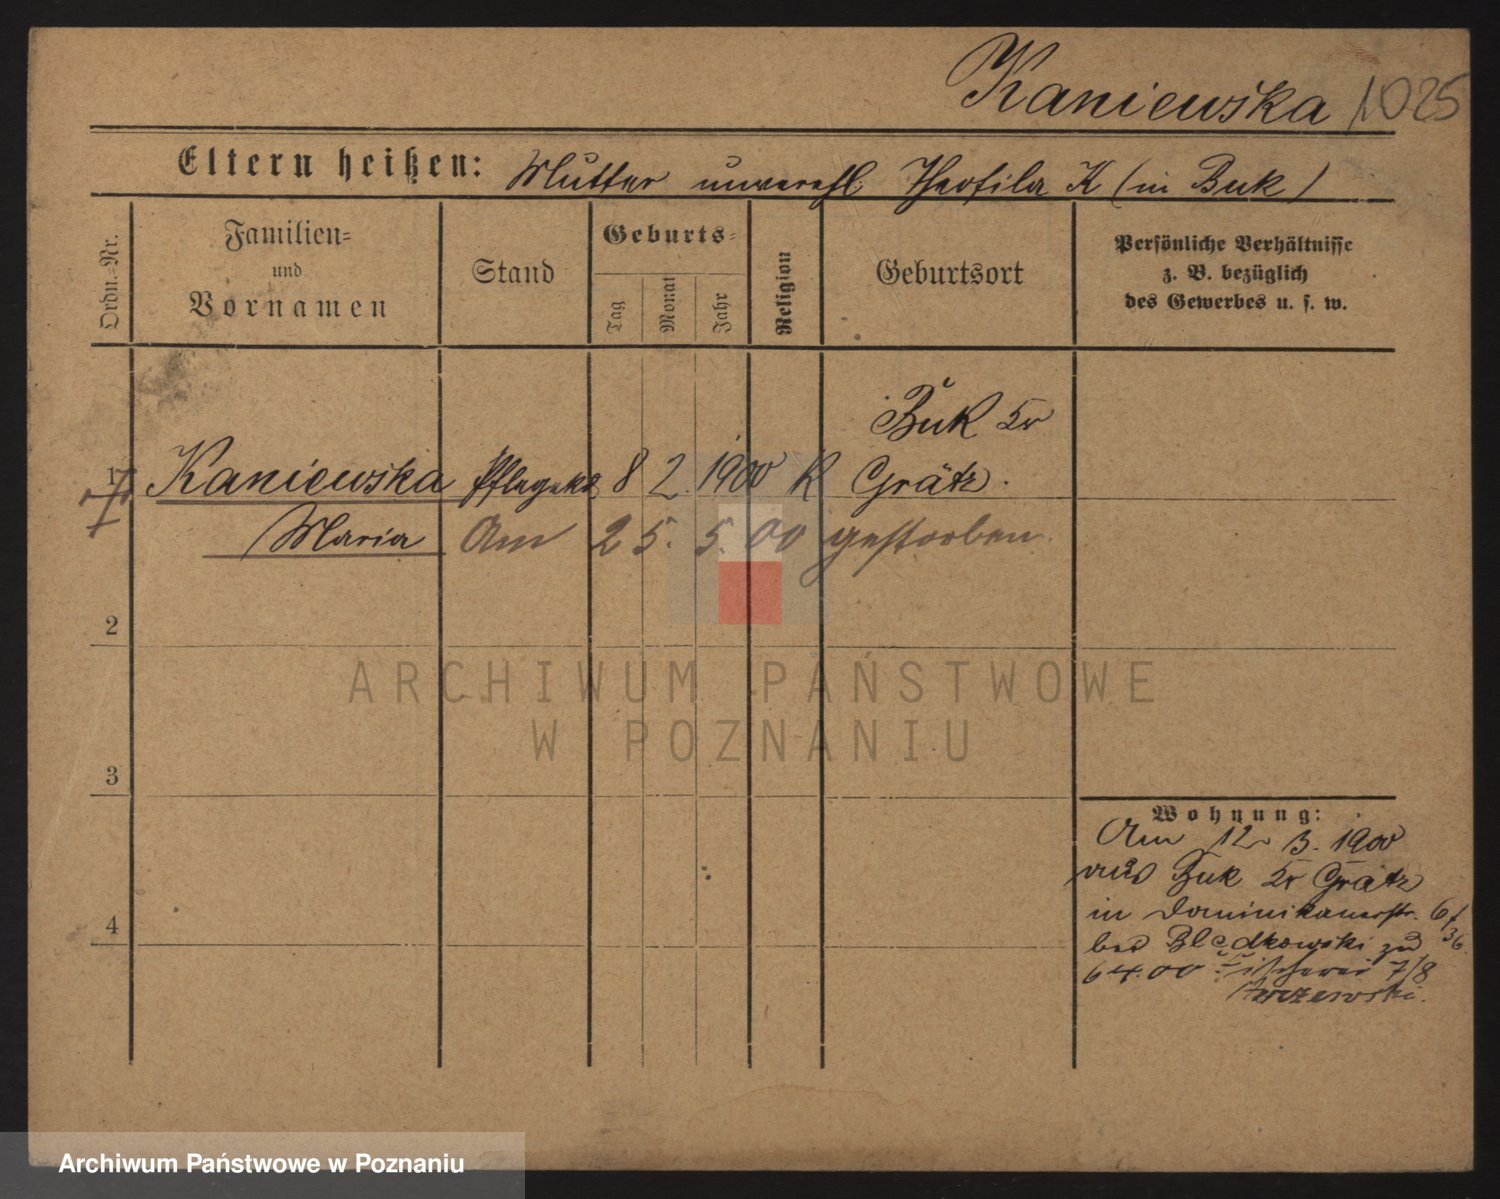 Kaniewska 1025
Eltern heißen: Mutter unverehl. Theofila K (in Buk)
Ordn.-Nr.
Familien-
und
Vornamen
Stand
Geburts-
Tag
Monat
Jahr
Religion
Geburtsort
Persönliche Verhältnisse
z. B. bezüglich
des Gewerbes u. s. w.
Buk Kr
1 Kaniewska Pflegek. 8 2. 1900 K Grätz.
Maria Am 25. 5. 00 gestorben.
2
ARCHIWUM PAŃSTWOWE
W POZNANIU
3
Wohnung:
Am 12. 3. 1900
aus Buk Kr Grätz
in Dominikanerstr. 6
bei zu 36.
64.00 Fischerei 7/8
4
Archiwum Państwowe w Poznaniu